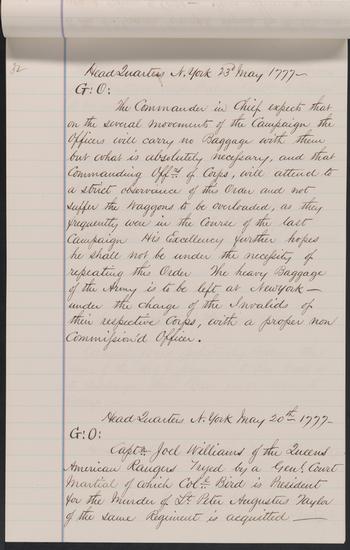 32
Head Quarters N. York 23d May 1777—
G: O:
The Commander in Chief expects that
on the several movements of the Campaign the
Officers will carry no Baggage with them
but what is absolutely necessary, and that
Commanding Offrs of Corps, will attend to
a strict observance of this Order and not
suffer the Waggons to be overloaded, as they
frequently were in the Course of the last
Campaign His Excellency further hopes
he shall not be under the necessity of
repeating this Order The heavy Baggage
of the Army is to be left at New York—
under the charge of the Invalids of
their respective Corps, with a proper non
Commission'd Officer.
Head Quarters N. York May 20th 1777—
G: O:
Captn Joel Williams of the Queens
American Rangers Tryed by a Genl. Court
Martial of which Col. Bird is President
for the Murder of Lt. Peter Augustus Taylor
of the same Regiment is acquitted —